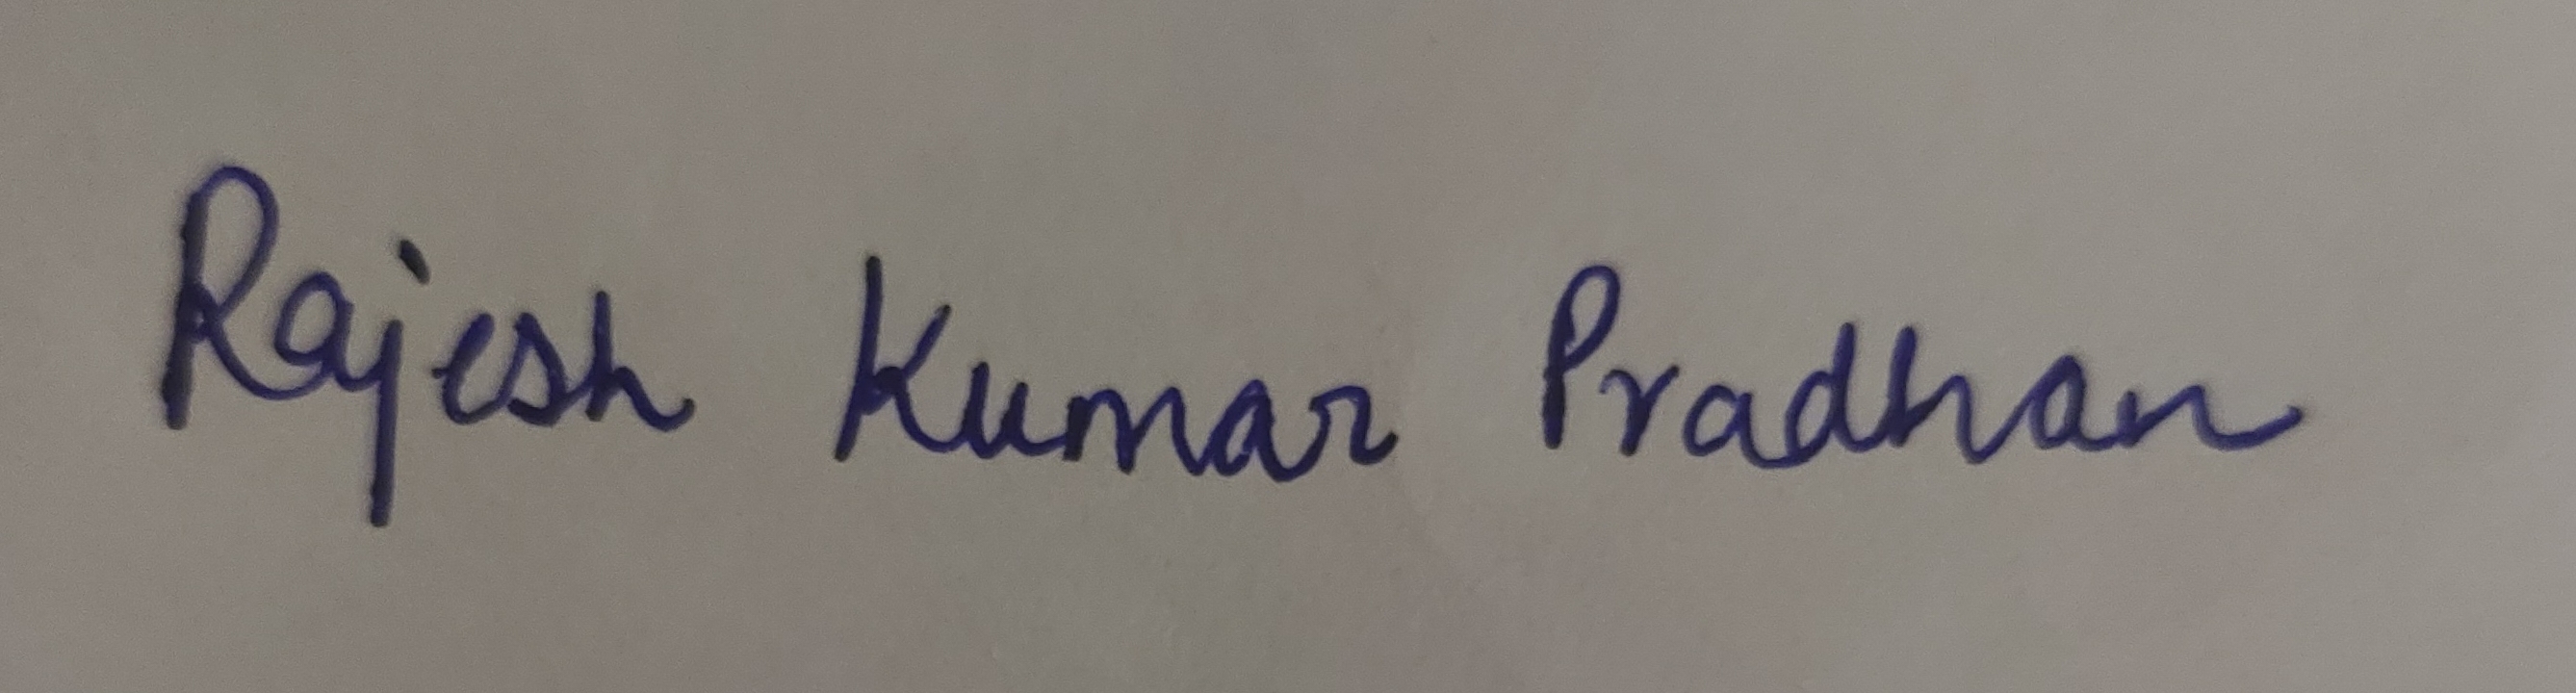 Rajesh Kumar Pradhan